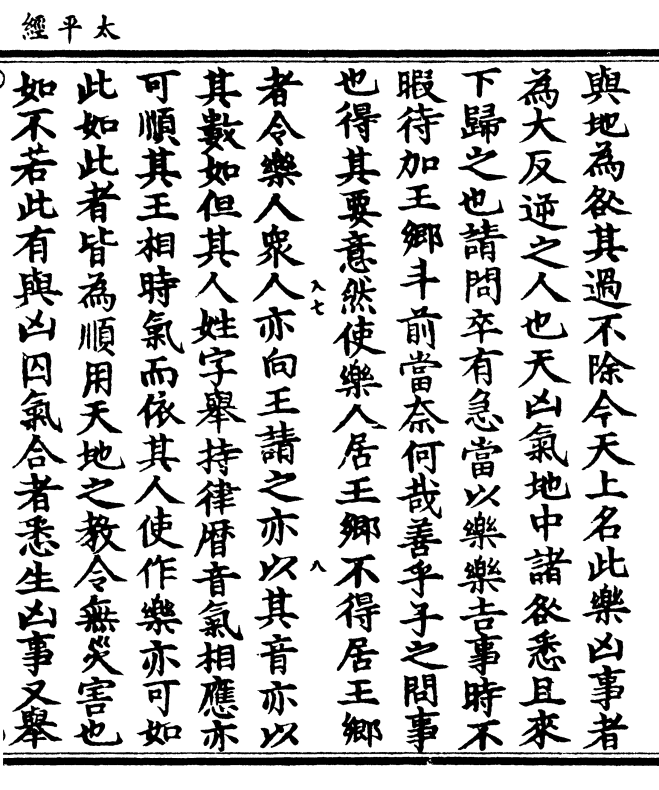 太平經
與地為欲其過不除今天上名此樂凶事者
為大反逆之人也天凶氣地中諸欲悉且來
下歸之也請問卒有急當以樂樂吉事時不
暇待加王鄉斗前當奈何哉善乎子之問事
也得其要意然使樂人居王鄉不得居王鄉
者令樂人眾人亦向王請之亦以其音亦以
其數如但其人姓字舉持律曆音氣相應亦
可順其王相時氣而依其人使作樂亦可如
此如此者皆為順用天地之教令無災害也
如不若此有與凶囚氣合者悉生凶事又舉
八七
八